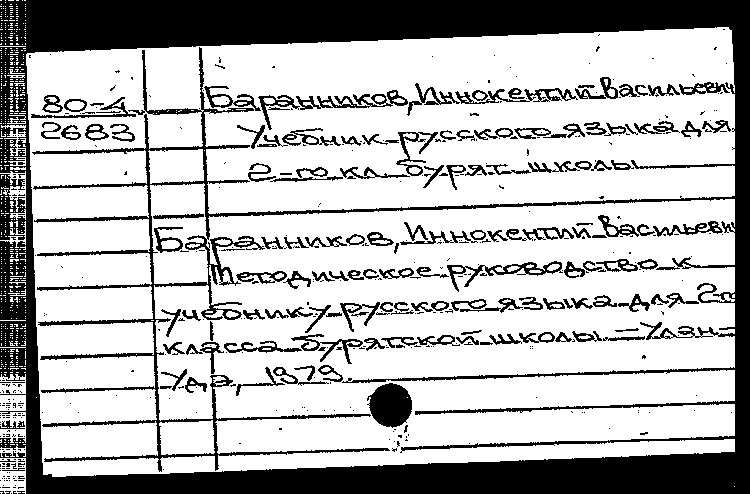 80-4
2683
Баранников, Иннокентий Васильеви
Учебник русского языка для
2-го кл. бурят. школы.
Баранников, Иннокентий Васильеви
Методическое руководство к
учебнику русского языка для 2го
класса бурятской школы. – Улан-
Удэ, 1979.